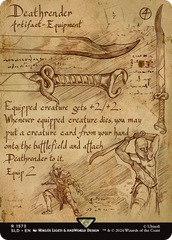 Deathrender
Artifact-Equipment
Equipped creature gets +2/+2.
Whenever equipped creature dies, you may
put a creature card from your hand
onto the battlefield and attach
Deathrender to it.
Equip 2
R 1573
© Ubisoft
SLD • EN
™ & © 2024 Wizards of the Coast